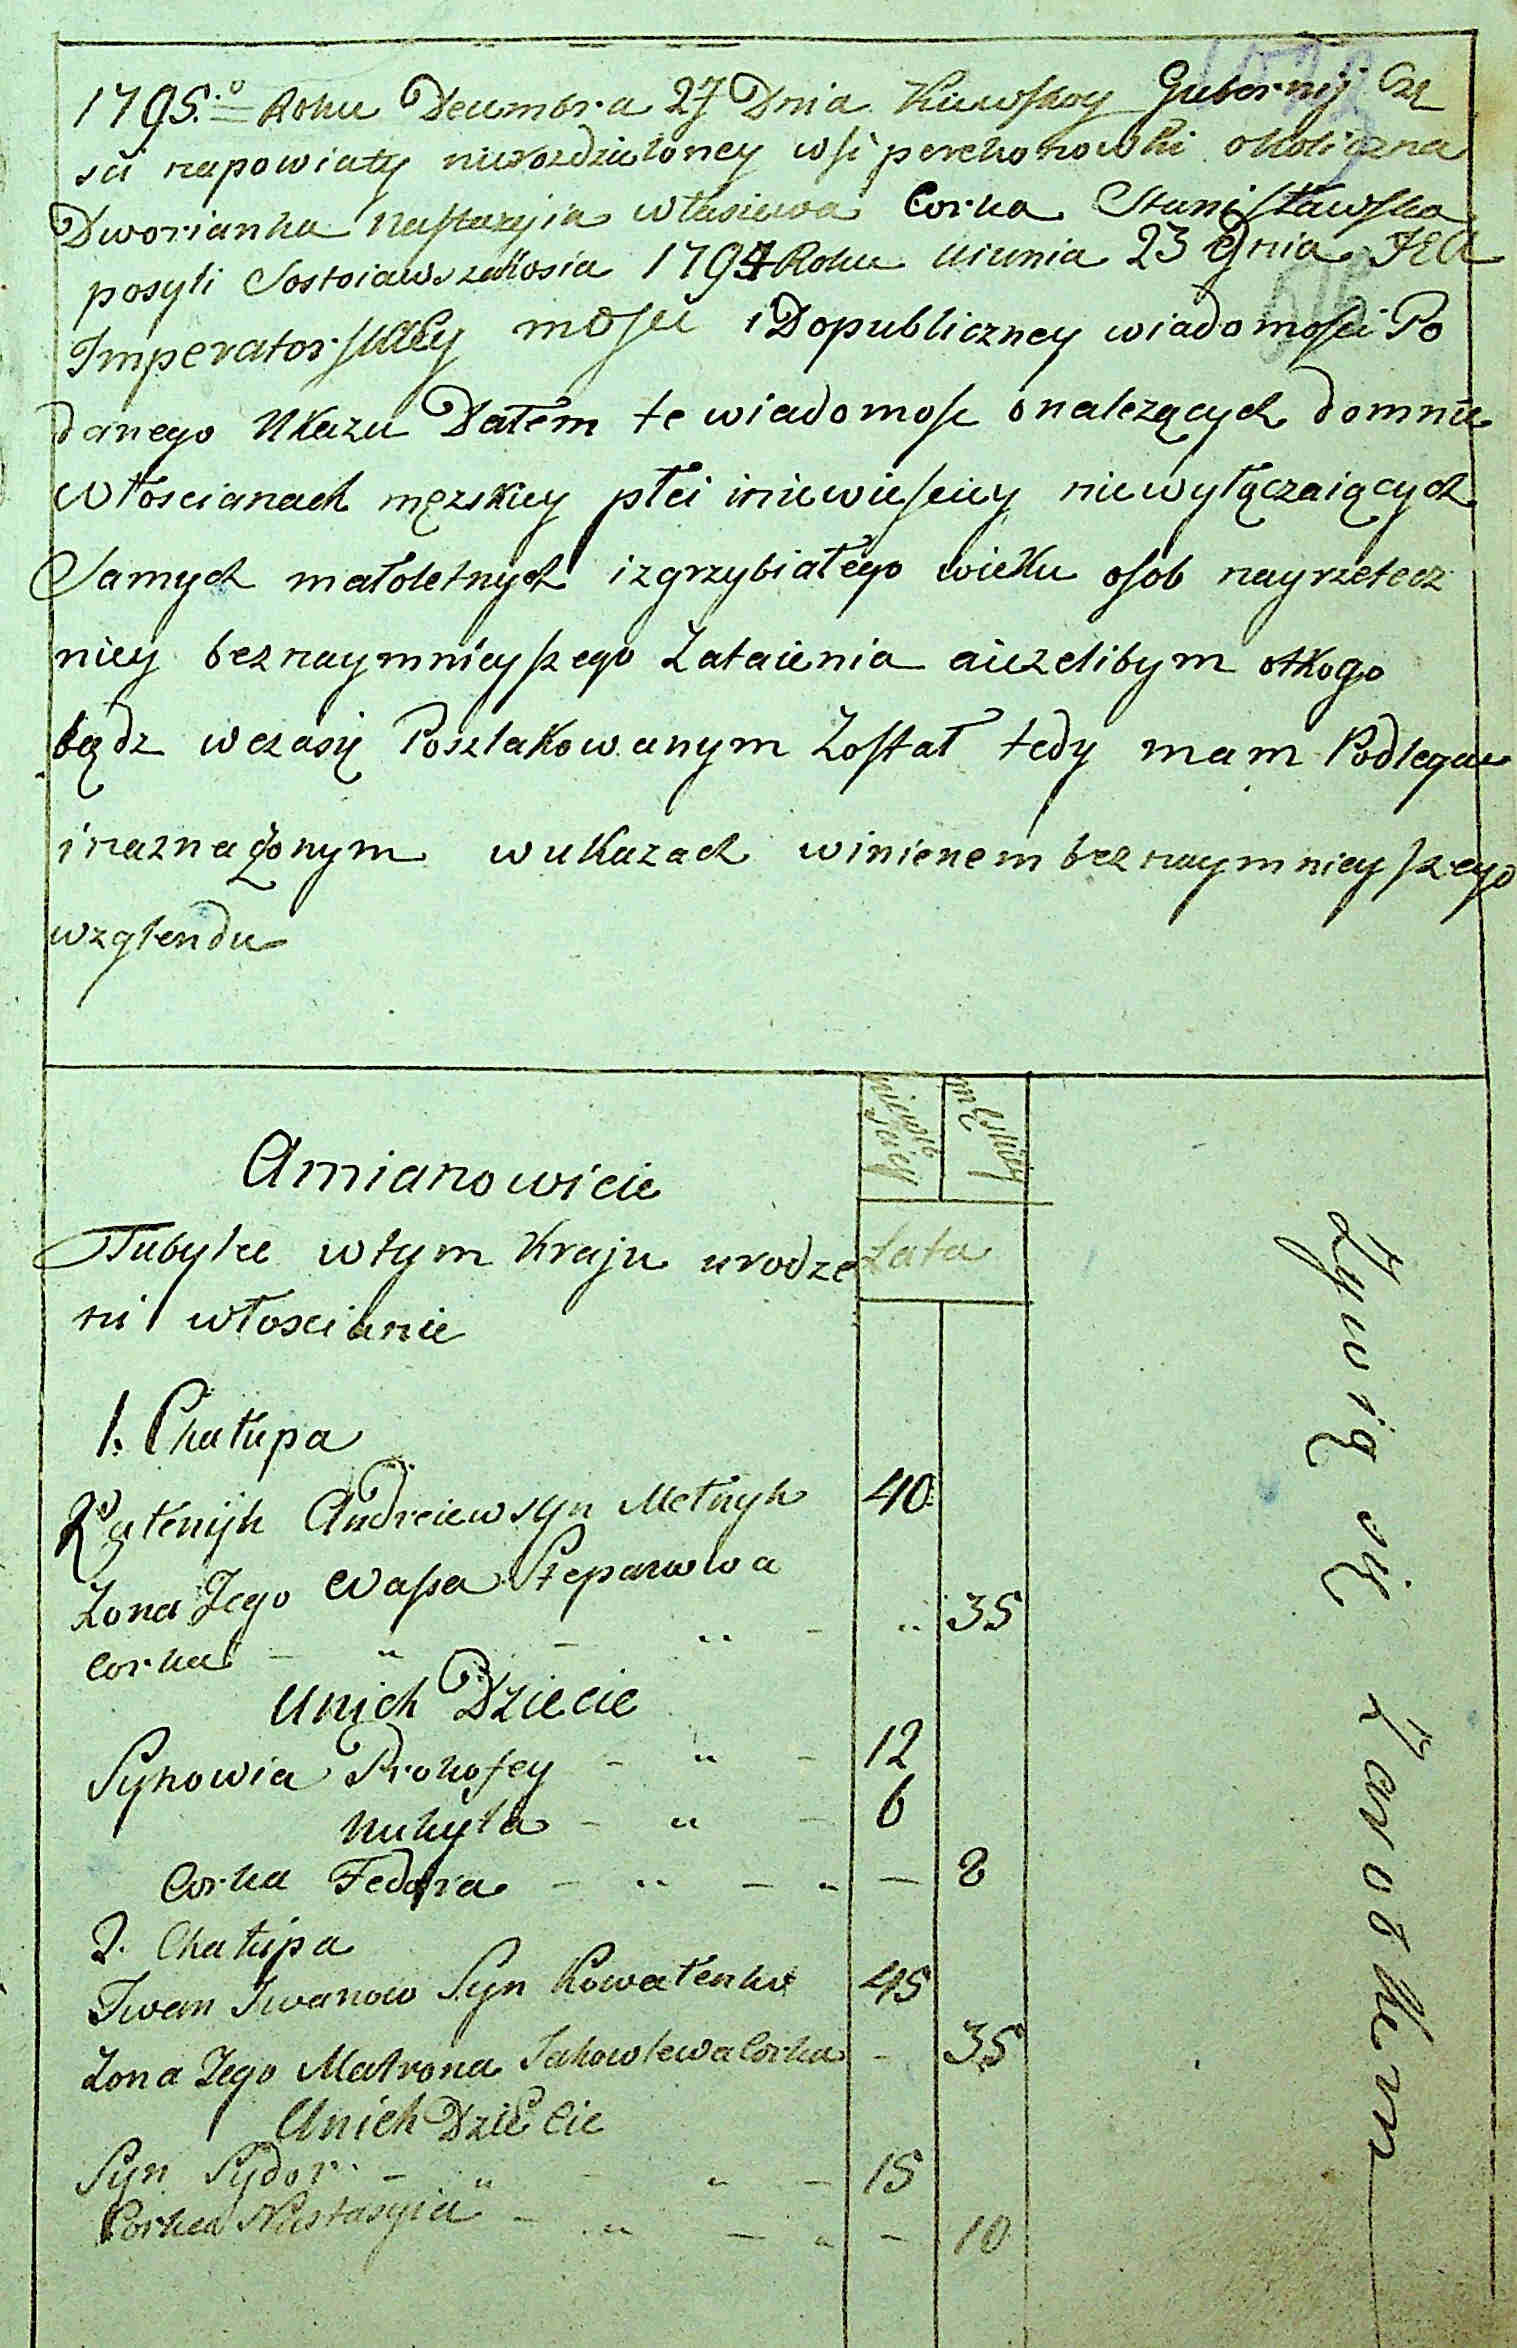 1795.º Roku Decembra 27 Dnia Kiiowskoy Gubernij Czę
sci napowiaty nierozdzieloney wsi perehonowki okoliczna
Dworianka Nastazyia własiewa Corka Stanisławska
posyli Sostoiawszahosia 1794 Roku Iiunia 23 Dnia IEA
Imperatorskiey mosci i Dopubliczney wiadomosci Po
danego Ukazu Dałem te wiadomosc o nalezących do mnie
włoscianach męzskiey płci i niewiesciey niewyłączaiących
Samych małoletnych i zgrzybiałego wieku osob nayrzetecz
niey beznaymnieyszego Zataienia a iezelibym otkogo
bądz w czasię Poszlakowanym Został tedy mam Podlegac
i naznaczonym w ukazach winienem beznaymnieyszego
wzglendu
niewie
sciey
męskiey
Amianowicie
Tubylce w tym Kraju urodze
Lata
ni włoscianie
1. Chałupa
Andreiew syn Melnyk 40
Zona Jego Wassa Stepanowa
Corka - " - " - " 35
U nich Dziecie
Synowia Prokofey - " - 12
Mikyła - " - 6
Corka Fedora - " - " - 8
2. Chałupa
Iwan Iwanow Syn Kowalenko 45
Zona Jego Matrona Jakowlewa Corka - 35
U nich Dziecie
Syn Sydor - " - " - 15
Corka Nastasyia - " - " - 10
Zywią się Zarobkem